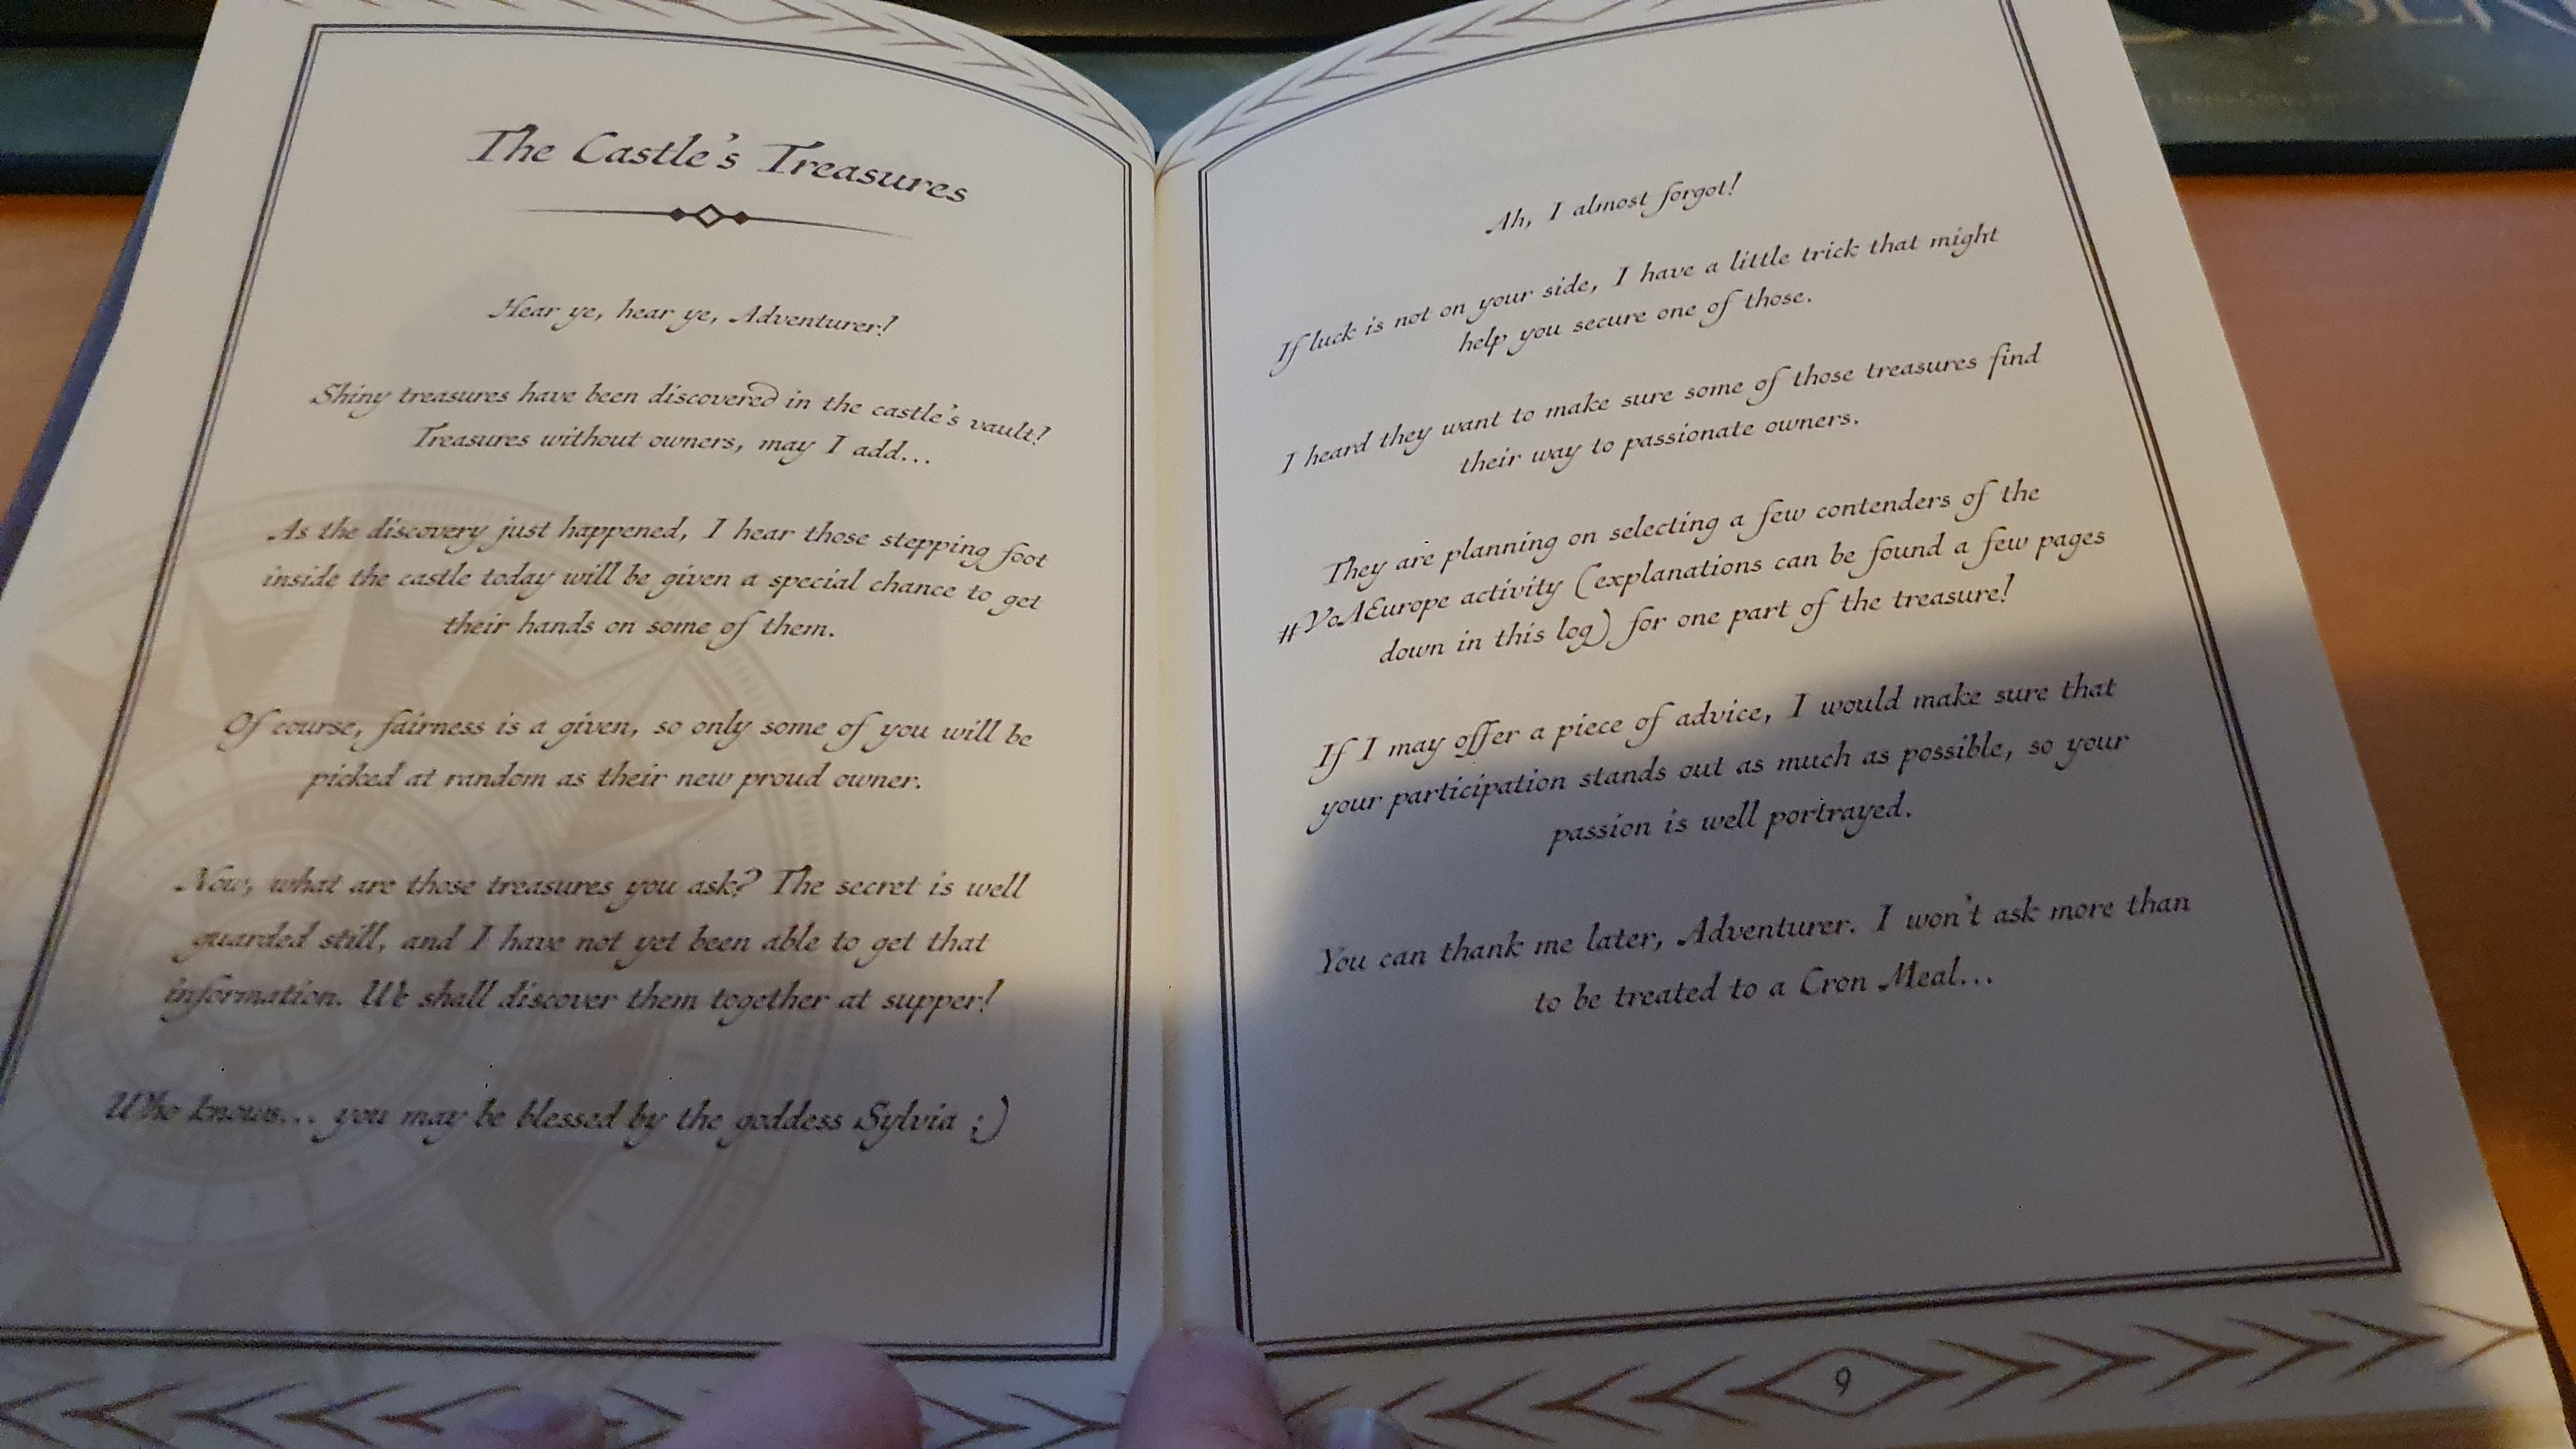 The Castle's Treasures
Hear ye, hear ye, Adventurer!
Shiny treasures have been discovered in the castle's vault!
Treasures without owners, may I add...
As the discovery just happened, I hear those stepping foot
inside the castle today will be given a special chance to get
their hands on some of them.
Of course, fairness is a given, so only some of you will be
picked at random as their new proud owner.
Now, what are those treasures you ask? The secret is well
guarded still, and I have not yet been able to get that
information. We shall discover them together at supper!
Who knows... you may be blessed by the goddess Sylvia ;)
Ah, I almost forgot!
If luck is not on your side, I have a little trick that might
help you secure one of those.
I heard they want to make sure some of those treasures find
their way to passionate owners.
They are planning on selecting a few contenders of the
#VoAEurope activity (explanations can be found a few pages
down in this log) for one part of the treasure!
If I may offer a piece of advice, I would make sure that
your participation stands out as much as possible, so your
passion is well portrayed.
You can thank me later, Adventurer. I won't ask more than
to be treated to a Cron Meal...
9